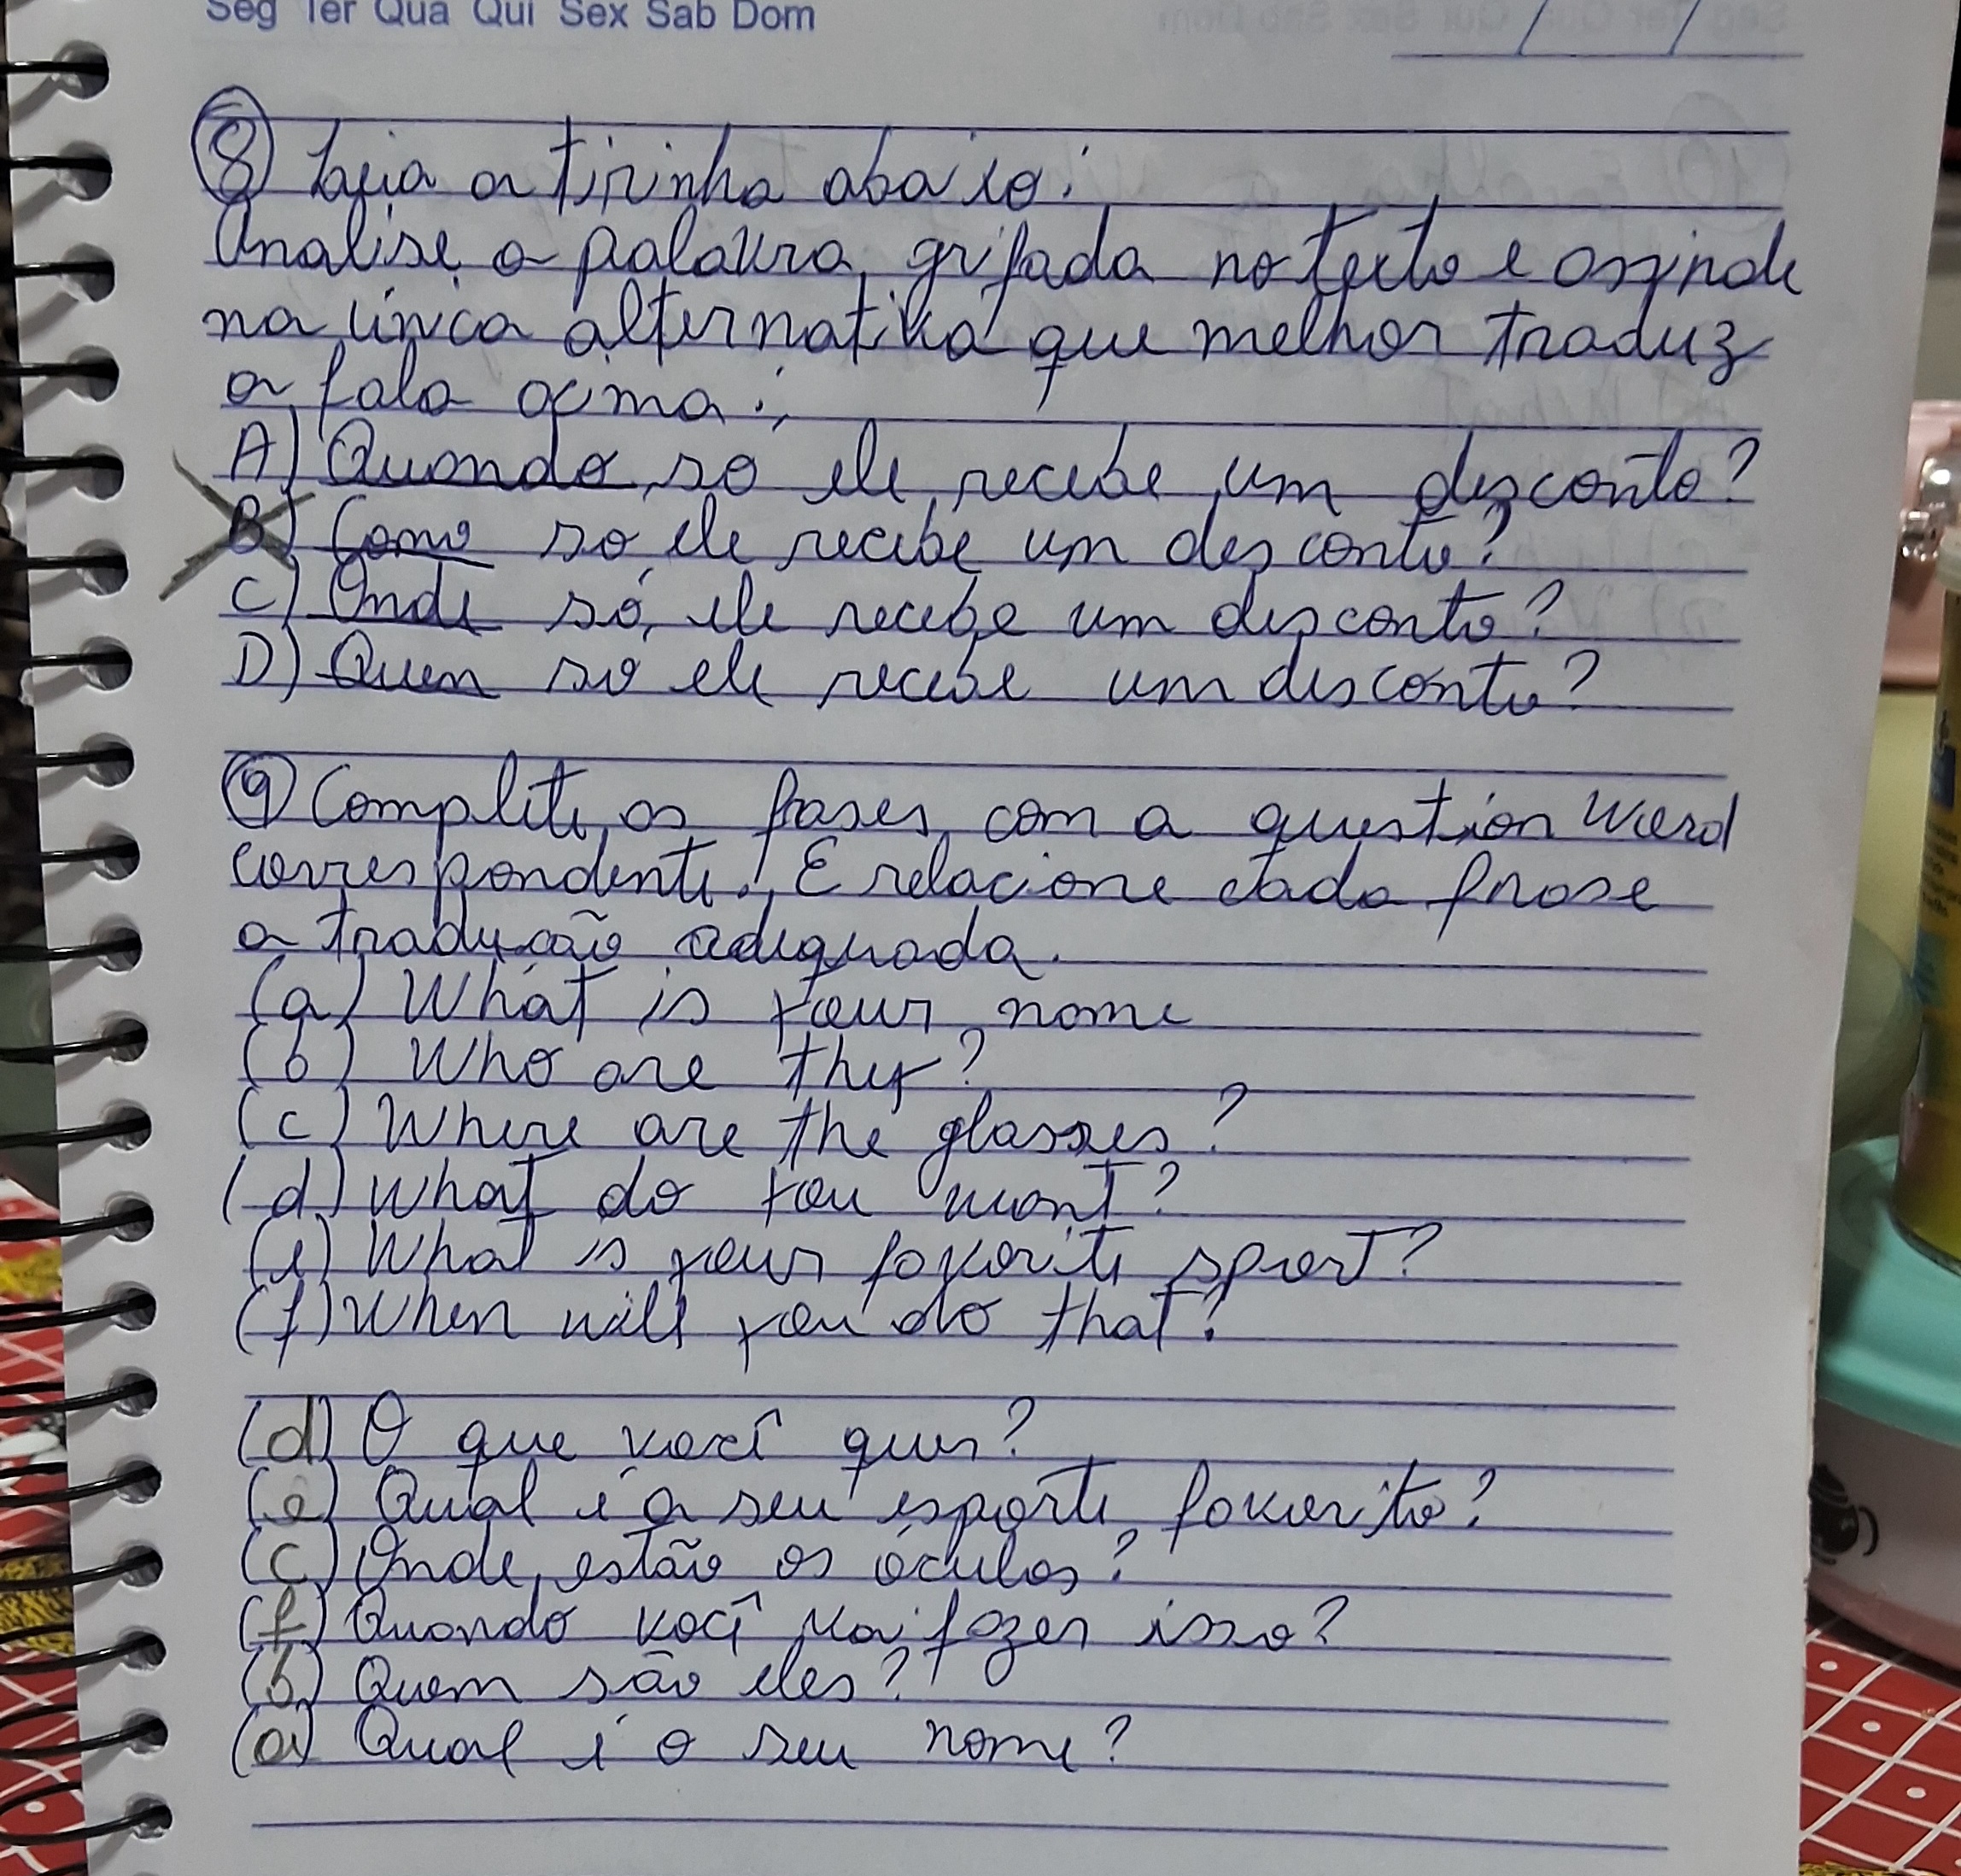 Seg Ter Qua Qui Sex Sab Dom
8 Leia a tirinha abaixo:
Analise a palavra grifada no texto e assinale
na única alternativa que melhor traduz
a fala acima:
A) Quando só ele recebe um desconto?
B) Como só ele recebe um desconto?
C) Onde só ele recebe um desconto?
D) Quem só ele recebe um desconto?
9 Complete as frases com a question Word
correspondente. E relacione cada frase
a tradução adequada.
(a) What is your name
(b) Who are they?
(c) Where are the glasses?
(d) What do you want?
(e) What is your favorite sport?
(f) When will you do that?
(d) O que você quer?
(e) Qual é o seu esporte favorito?
(c) Onde estão os óculos?
(f) Quando você vai fazer isso?
(b) Quem são eles?
(a) Qual é o seu nome?